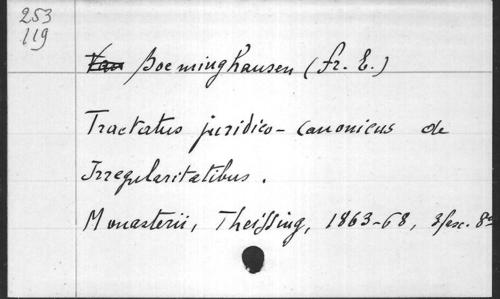 253
119
Van Boeminghausen (Fr. E.)
Tractatus juridico-canonicus de
Irregularitatibus.
Monasterii, Theissing, 1863-68, 3 fasc. 8º